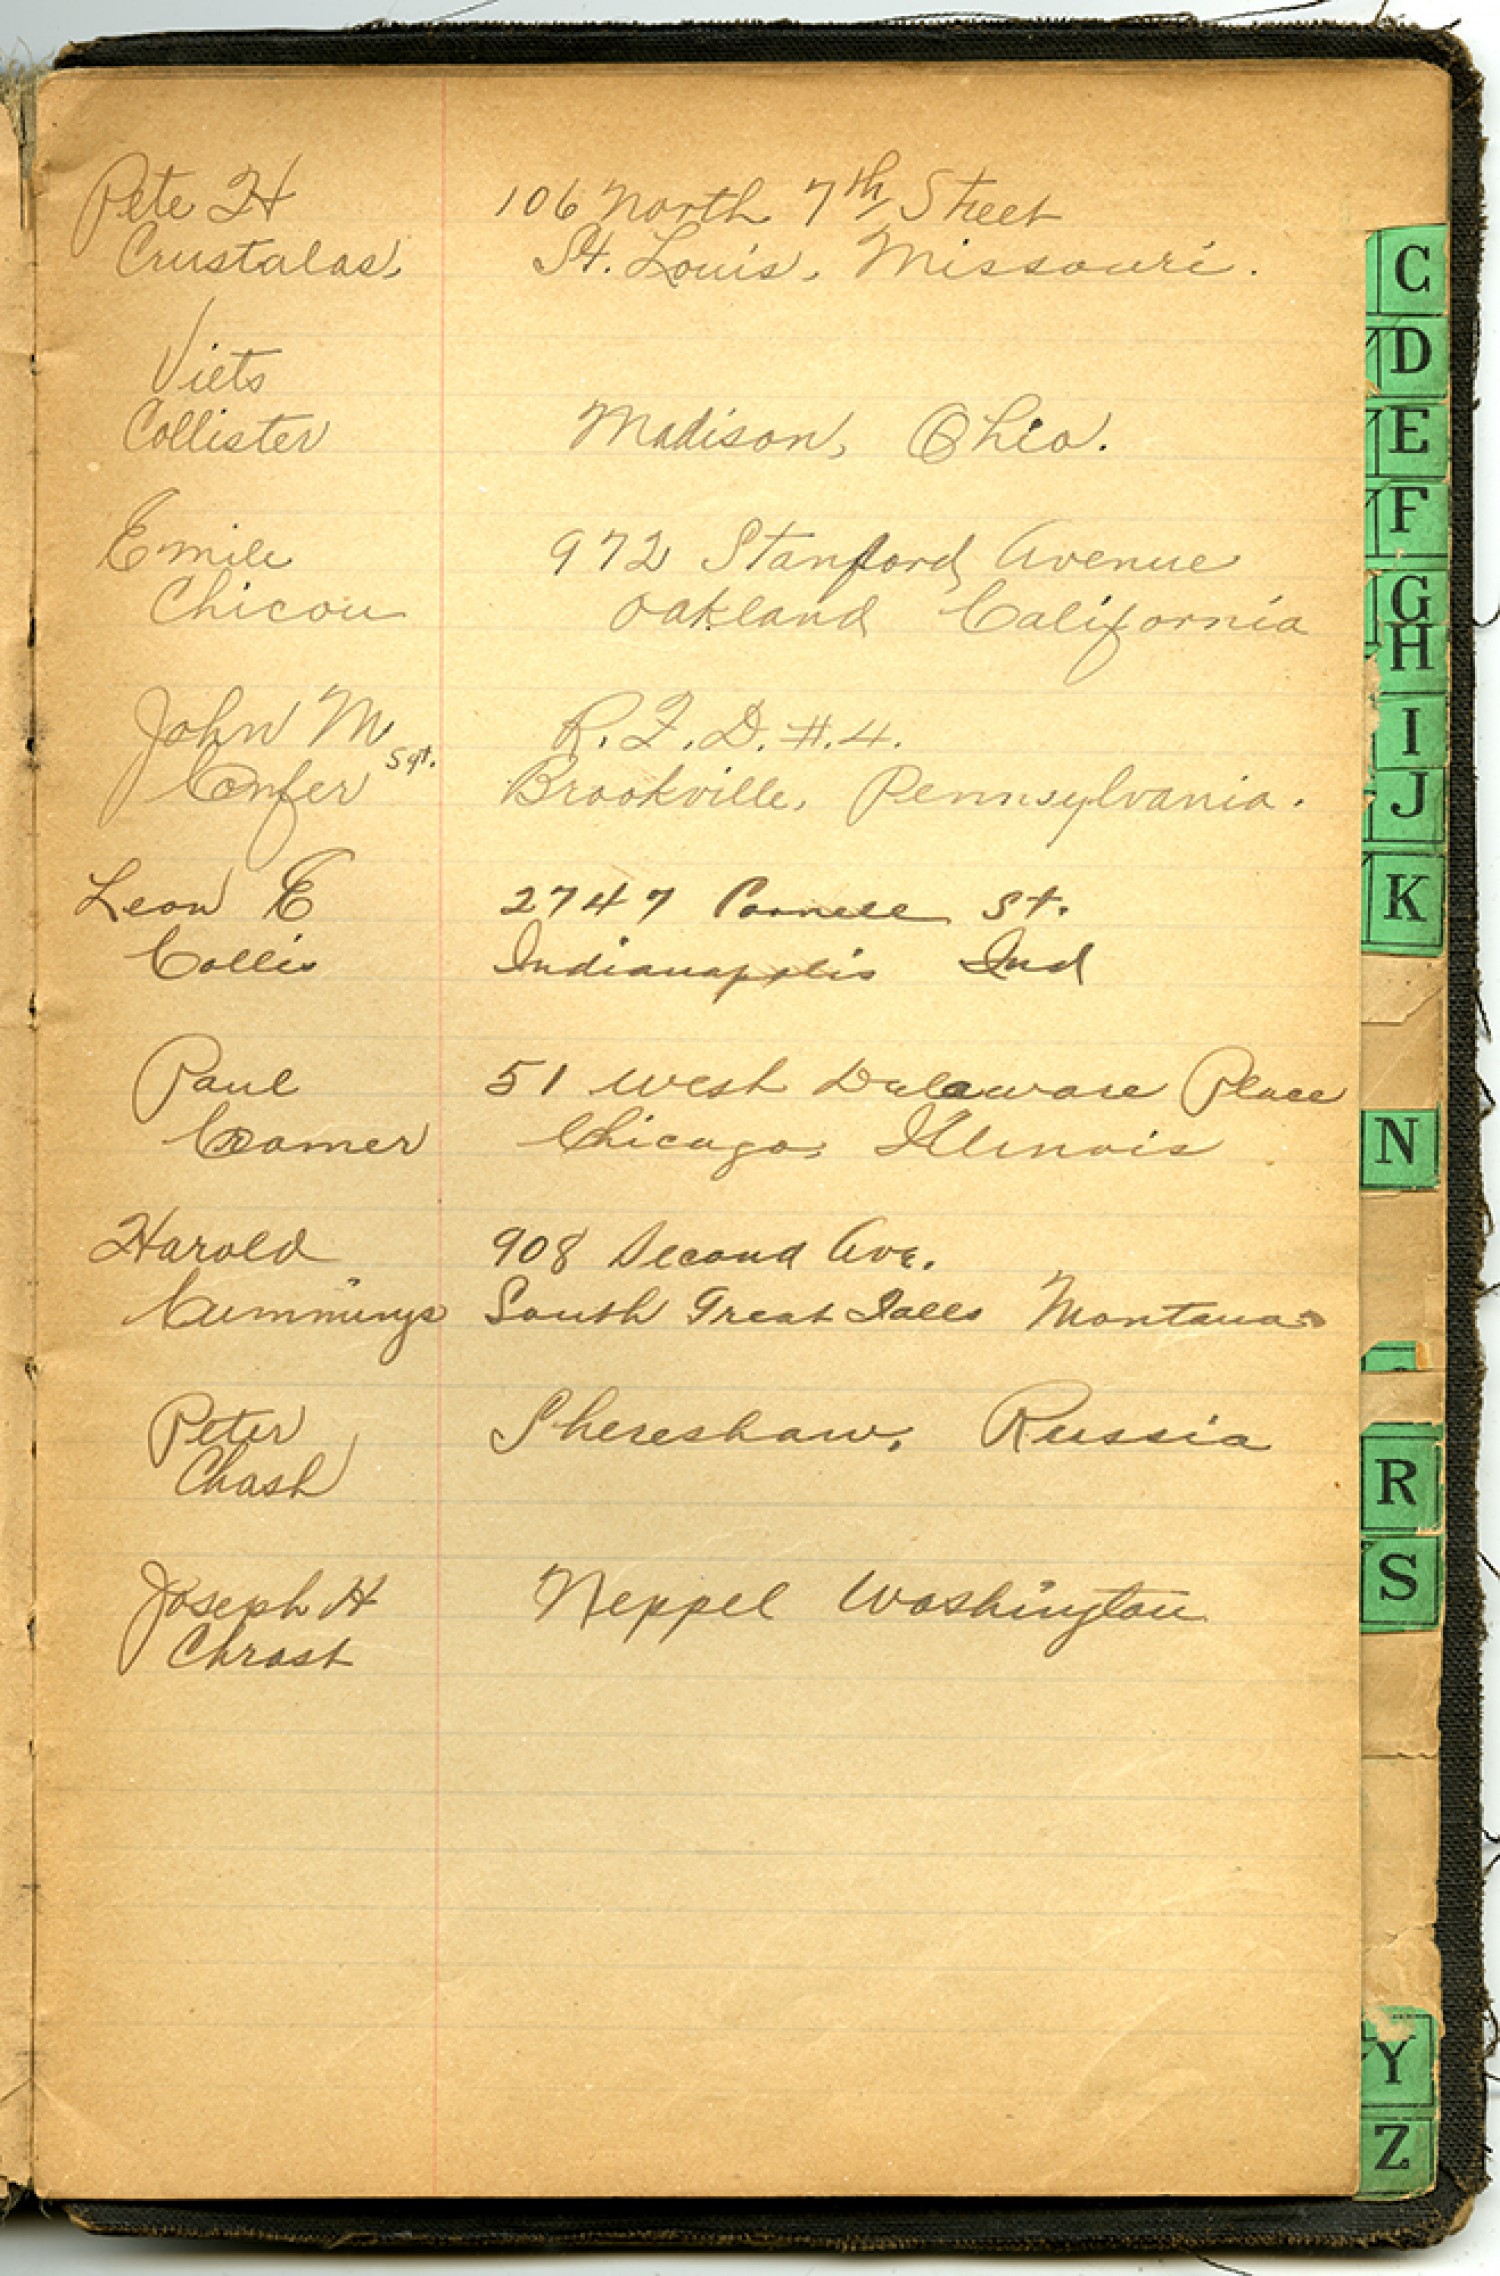 Pete H 106 North 7th Street
Crustalas, St. Louis, Missouri.
Viets
Collister Madison, Ohio.
Emile 972 Stanford Avenue
Chicou Oakland California
John M Sgt. R.F.D. #.4.
Confer Brookville, Pennsylvania.
Leon E 2747 Cornell St.
Collis Indianapolis Ind
Paul 51 West Delaware Place
Cramer Chicago, Illinois
Harold 908 Second Ave.
Cummings South Great Falls Montana
Peter Shereshaw, Russia
Chash
Joseph H Neppel Washington
Chrast
C
D
E
F
G
H
I
J
K
N
R
S
Y
Z